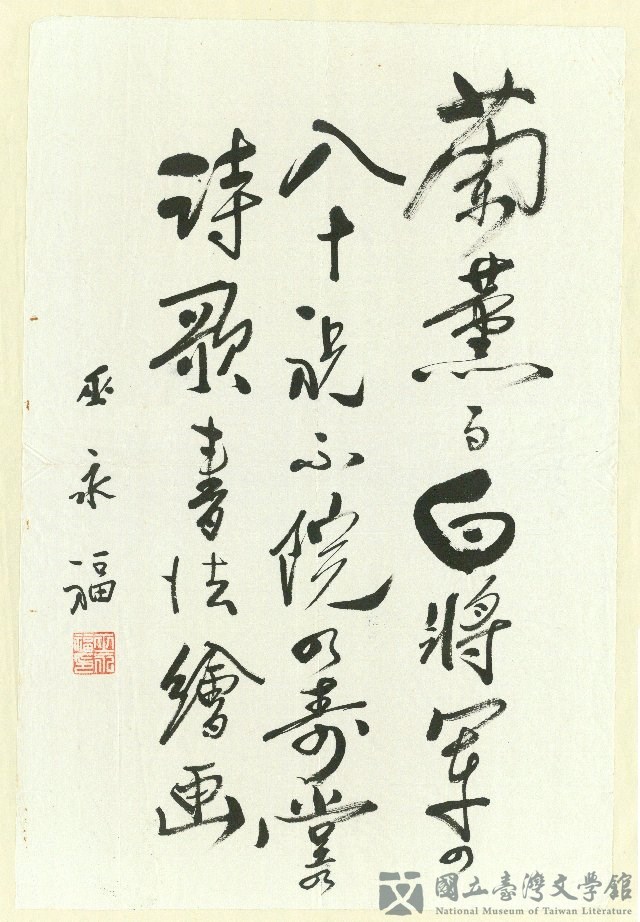 蘭薫る白將軍の
八十祝ふ院の寿
詩歌書法繪画
巫永福
國立臺灣文學館
National Museum of Taiwan Literature